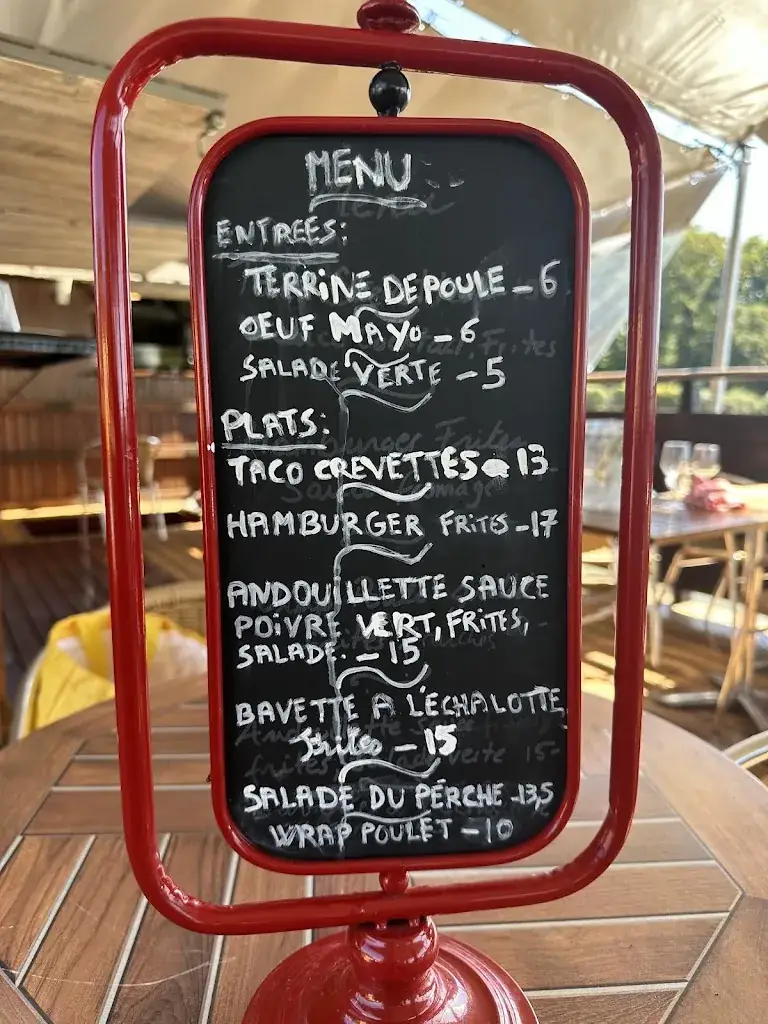 MENU
ENTREES:
TERRINE DE POULE - 6
OEUF MAYO - 6
SALADE VERTE - 5
PLATS:
TACO CREVETTES - 13
HAMBURGER FRITES - 17
ANDOUILLETTE SAUCE
POIVRE VERT, FRITES,
SALADE. - 15
BAVETTE A L'ÉCHALOTTE
frites - 15
SALADE DU PERCHE - 13,5
WRAP POULET - 10